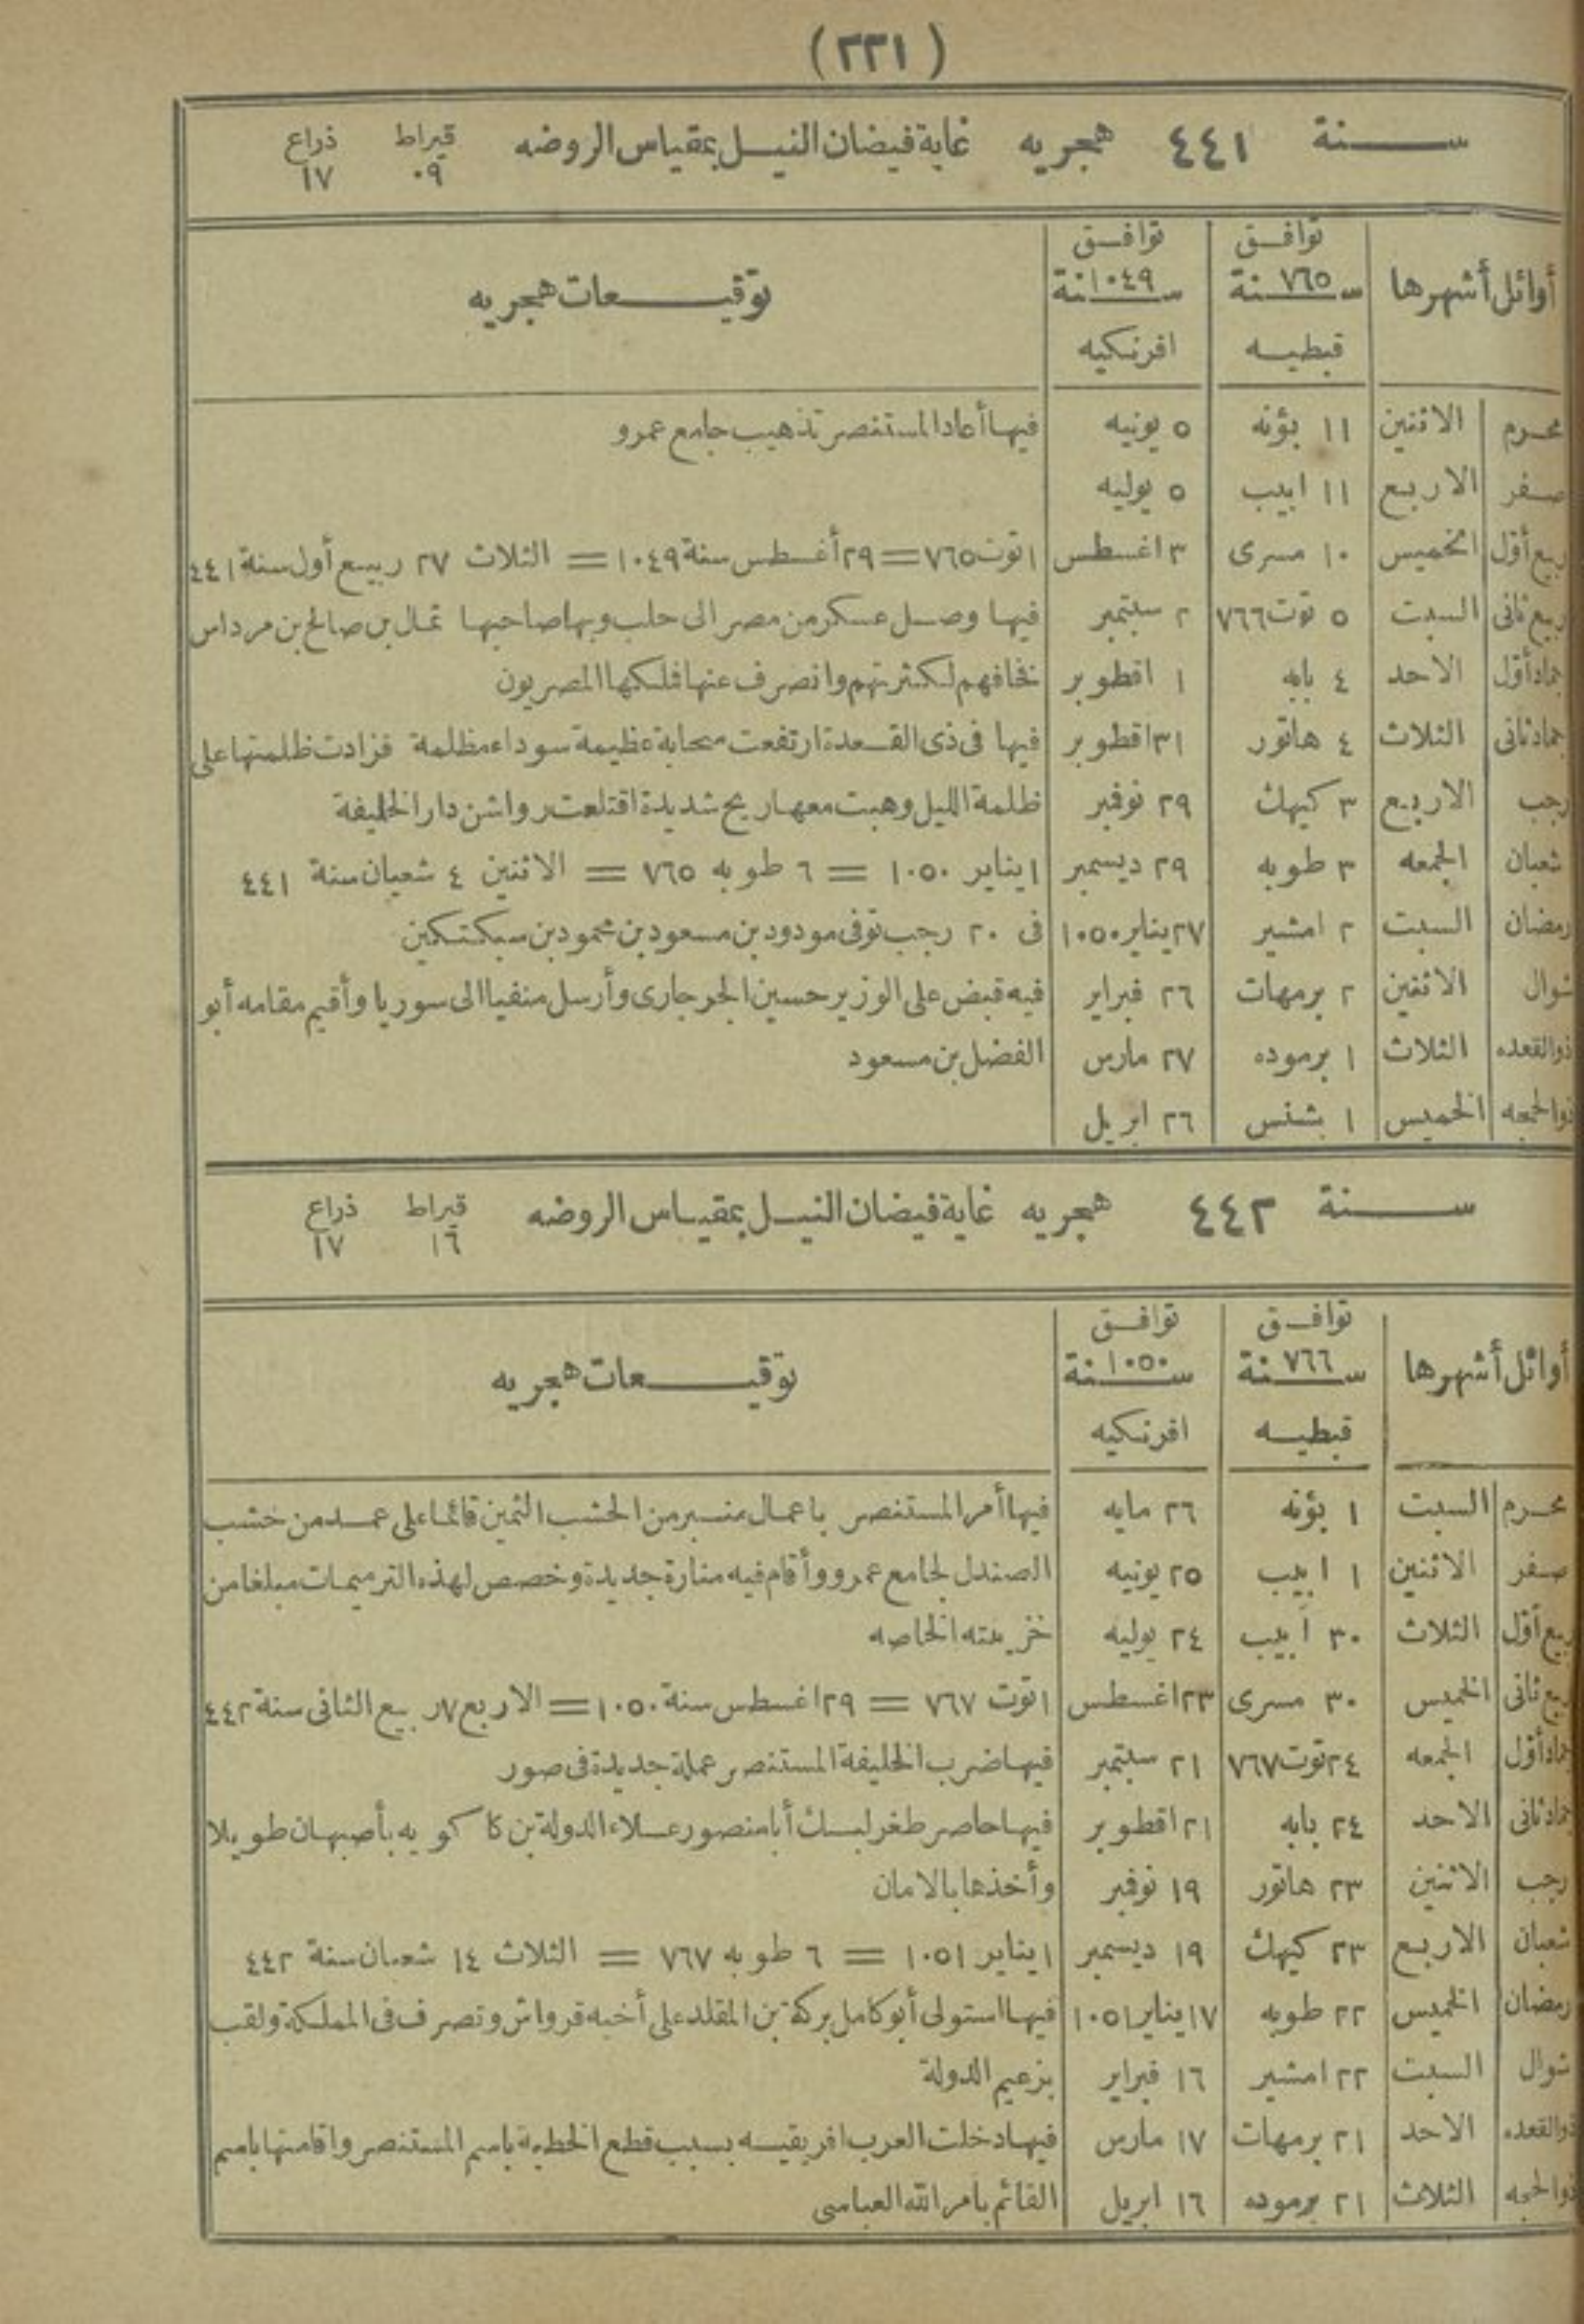 (٢٢١)
ســنة ٤٤١ هجريه غاية فيضان النيــل بمقياس الروضه قيراط ٠٩ ذراع ١٧
أوائل أشهرها توافق ســنة ٧٦٥ قبطيــه توافق ســنة ١٠٤٩ افرنكيه توقيــعات هجريه
محرم الاثنين ١١ بؤنه ٥ يونيه فيها أعاد المستنصر تذهيب جامع عمرو
صفر الاربع ١١ ابيب ٥ يوليه
ربيع أول الخميس ١٠ مسرى ٣ اغسطس ١ توت ٧٦٥ = ٢٩ أغسطس سنة ١٠٤٩ = الثلاث ٢٧ ربيع أول سنة ٤٤١
ربيع ثانى السبت ٥ توت ٧٦٦ ٢ سبتمبر فيها وصل عسكر من مصر الى حلب وبها صاحبها ثمال بن صالح بن مرداس
جماد أول الاحد ٤ بابه ١ اقطوبر فخافهم لكثرتهم وانصرف عنها فملكها المصريون
جماد ثانى الثلاث ٤ هاتور ٣١ اقطوبر فيها فى ذى القعدة ارتفعت سحابة عظيمة سوداء مظلمة فزادت ظلمتها على
رجب الاربع ٣ كيهك ٢٩ نوفمبر ظلمة الليل وهبت معها ريح شديدة اقتلعت رواشن دار الخليفة
شعبان الجمعه ٣ طوبه ٢٩ ديسمبر ١ يناير ١٠٥٠ = ٦ طوبه ٧٦٥ = الاثنين ٤ شعبان سنة ٤٤١
رمضان السبت ٢ امشير ٢٧ يناير ١٠٥٠ فى ٢٠ رجب توفى مودود بن مسعود بن محمود بن سبكتكين
شوال الاثنين ٢ برمهات ٢٦ فبراير فيه قبض على الوزير حسين الجرجارى وأرسل منفيا الى سوريا وأقيم مقامه أبو
ذو القعده الثلاث ١ برموده ٢٧ مارس الفضل بن مسعود
ذو الحجه الخميس ١ بشنس ٢٦ ابريل
ســنة ٤٤٢ هجريه غاية فيضان النيــل بمقياس الروضه قيراط ١٦ ذراع ١٧
أوائل أشهرها توافق ســنة ٧٦٦ قبطيــه توافق ســنة ١٠٥٠ افرنكيه توقيــعات هجريه
محرم السبت ١ بؤنه ٢٦ مايه فيها أمر المستنصر باعمال منبر من الخشب الثمين قائما على عمد من خشب
صفر الاثنين ١ ابيب ٢٥ يونيه الصندل لجامع عمرو وأقام فيه منارة جديدة وخصص لهذه الترميمات مبلغا من
ربيع أول الثلاث ٣٠ أبيب ٢٤ يوليه خزينته الخاصه
ربيع ثانى الخميس ٣٠ مسرى ٢٣ اغسطس ١ توت ٧٦٧ = ٢٩ اغسطس سنة ١٠٥٠ = الاربع ٧ ربيع الثانى سنة ٤٤٢
جماد أول الجمعه ٢٤ توت ٧٦٧ ٢١ سبتمبر فيها ضرب الخليفة المستنصر عملة جديدة فى صور
جماد ثانى الاحد ٢٤ بابه ٢١ اقطوبر فيها حاصر طغرلبك أبا منصور علاء الدولة بن كاكويه بأصبهان طويلا
رجب الاثنين ٢٣ هاتور ١٩ نوفمبر وأخذها بالامان
شعبان الاربع ٢٣ كيهك ١٩ ديسمبر ١ يناير ١٠٥١ = ٦ طوبه ٧٦٧ = الثلاث ١٤ شعبان سنة ٤٤٢
رمضان الخميس ٢٢ طوبه ١٧ يناير ١٠٥١ فيها استولى أبو كامل بركة بن المقلد على أخيه قرواش وتصرف فى المملكة ولقب
شوال السبت ٢٢ امشير ١٦ فبراير بزعيم الدولة
ذو القعده الاحد ٢١ برمهات ١٧ مارس فيها دخلت العرب افريقيــه بسبب قطع الخطبة باسم المستنصر واقامتها باسم
ذو الحجه الثلاث ٢١ برموده ١٦ ابريل القائم بامر الله العباسى